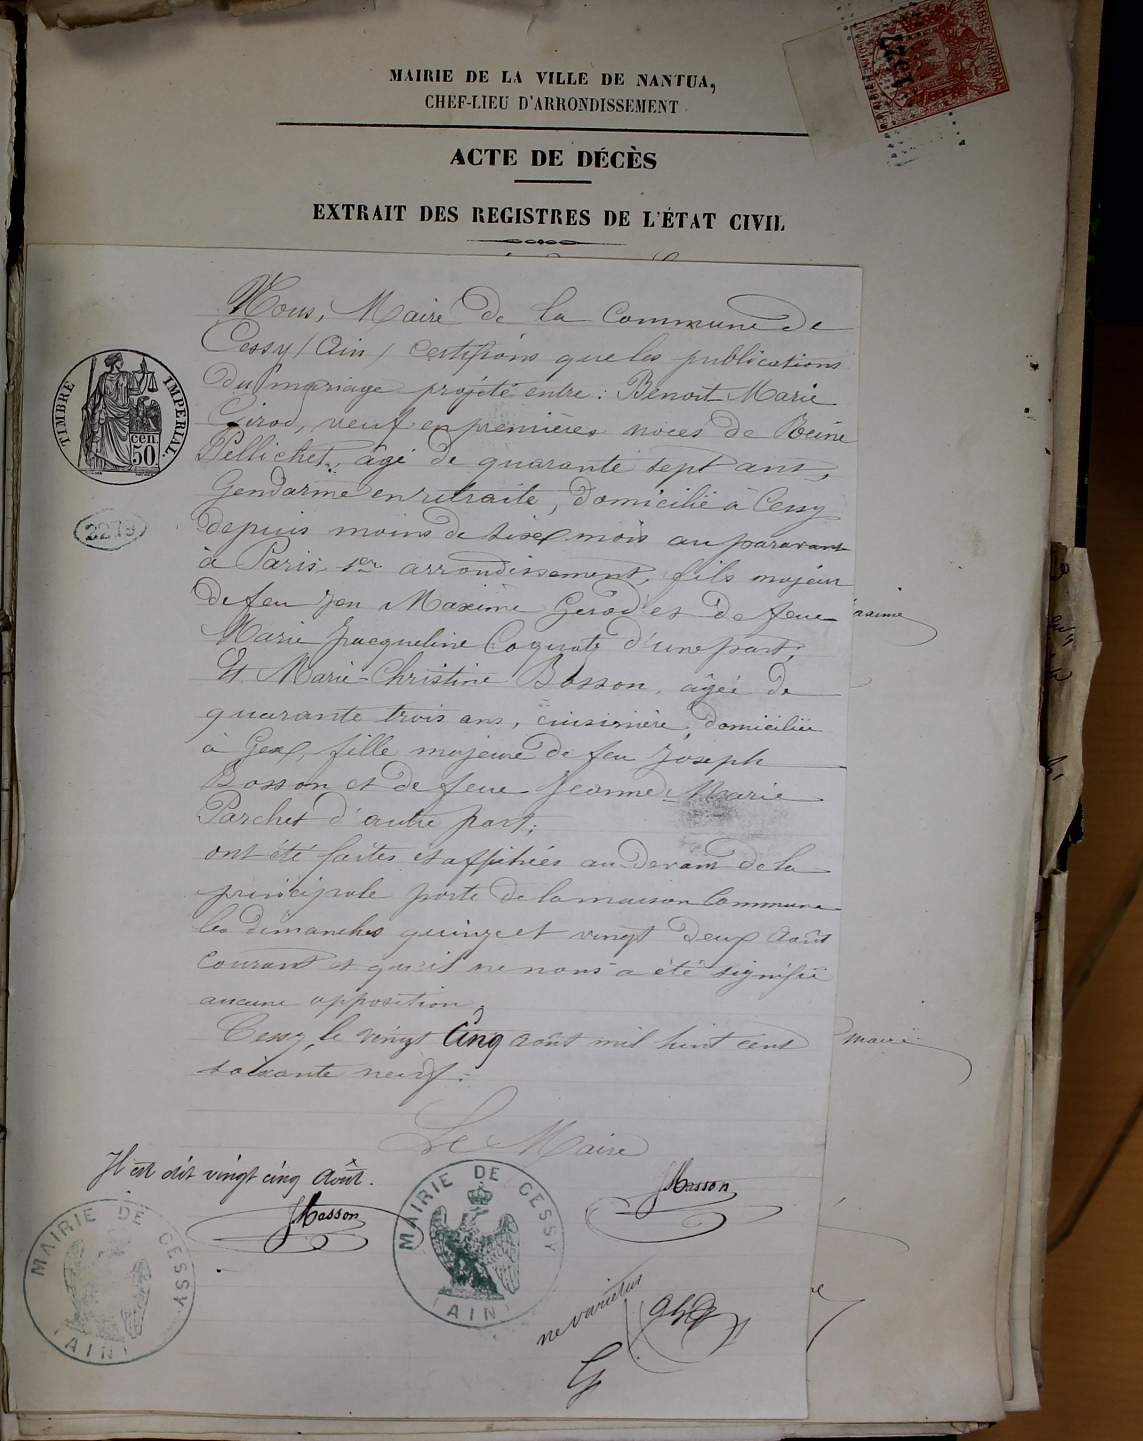 MAIRIE DE LA VILLE DE NANTUA,
CHEF-LIEU D'ARRONDISSEMENT
ACTE DE DÉCÈS
EXTRAIT DES REGISTRES DE L'ÉTAT CIVIL
1227
Nous, Maire de la Commune de
Cessy (Ain) certifions que les publications
du mariage projeté entre : Benoit Marie
Girod, veuf en premières noces de Reine
Pellichet, âgé de quarante sept ans,
Gendarme en retraite, domicilié à Cessy
depuis moins de six mois au paravant
à Paris 1er arrondissement, fils majeur
de feu Jean Maxime Gerod et de feue
Marie Jacqueline Coquate d'une part;
Et Marie-Christine Bosson, âgée de
quarante trois ans, cuisinière, domiciliée
à Gex, fille majeure de feu Joseph
Bosson et de feue Jeanne-Marie
Parchet d'autre part;
ont été faites et affichées au devant de la
principale porte de la maison Commune
les dimanches quinze et vingt deux Août
courant et qu'il ne nous a été signifié
aucune opposition.
Cessy, le vingt Cinq août mil huit cent
soixante neuf.
Le Maire
JMasson
Il est dit vingt cinq Août.
JMasson
TIMBRE IMPERIAL
50 cen
2279
MAIRIE DE CESSY
(AIN)
MAIRIE DE CESSY
(AIN)
ne varietur
axime
maire